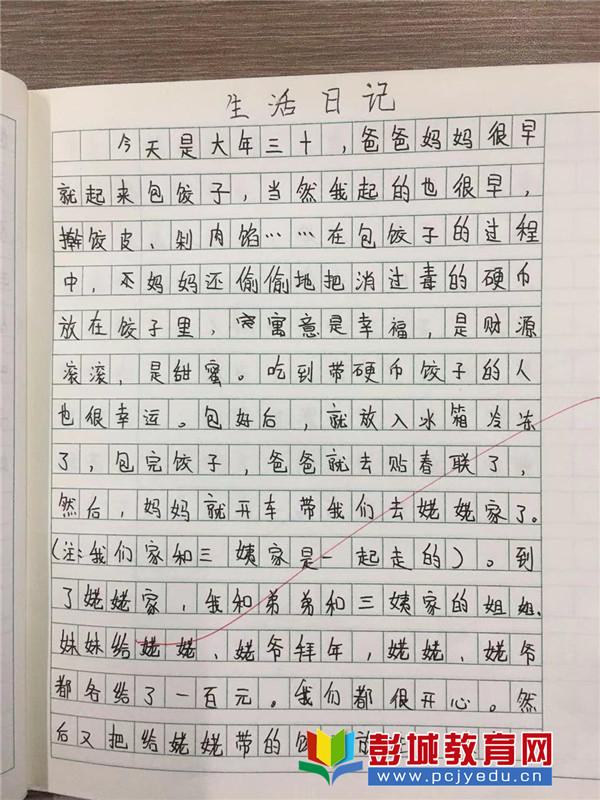 生活日记
今天是大年三十，爸爸妈妈很早
就起来包饺子，当然我起的也很早，
擀饺皮、剁肉馅……在包饺子的过程
中，妈妈还偷偷地把消过毒的硬币
放在饺子里，寓意是幸福，是财源
滚滚，是甜蜜。吃到带硬币饺子的人
也很幸运。包好后，就放入冰箱冷冻
了，包完饺子，爸爸就去贴春联了，
然后，妈妈就开车带我们去姥姥家了。
（注：我们家和三姨家是一起走的）。到
了姥姥家，我和弟弟和三姨家的姐姐、
妹妹给姥姥、姥爷拜年，姥姥、姥爷
都各给了一百元。我们都很开心。然
后又把给姥姥带的饺 放
彭城教育网
www.pcjyedu.cn